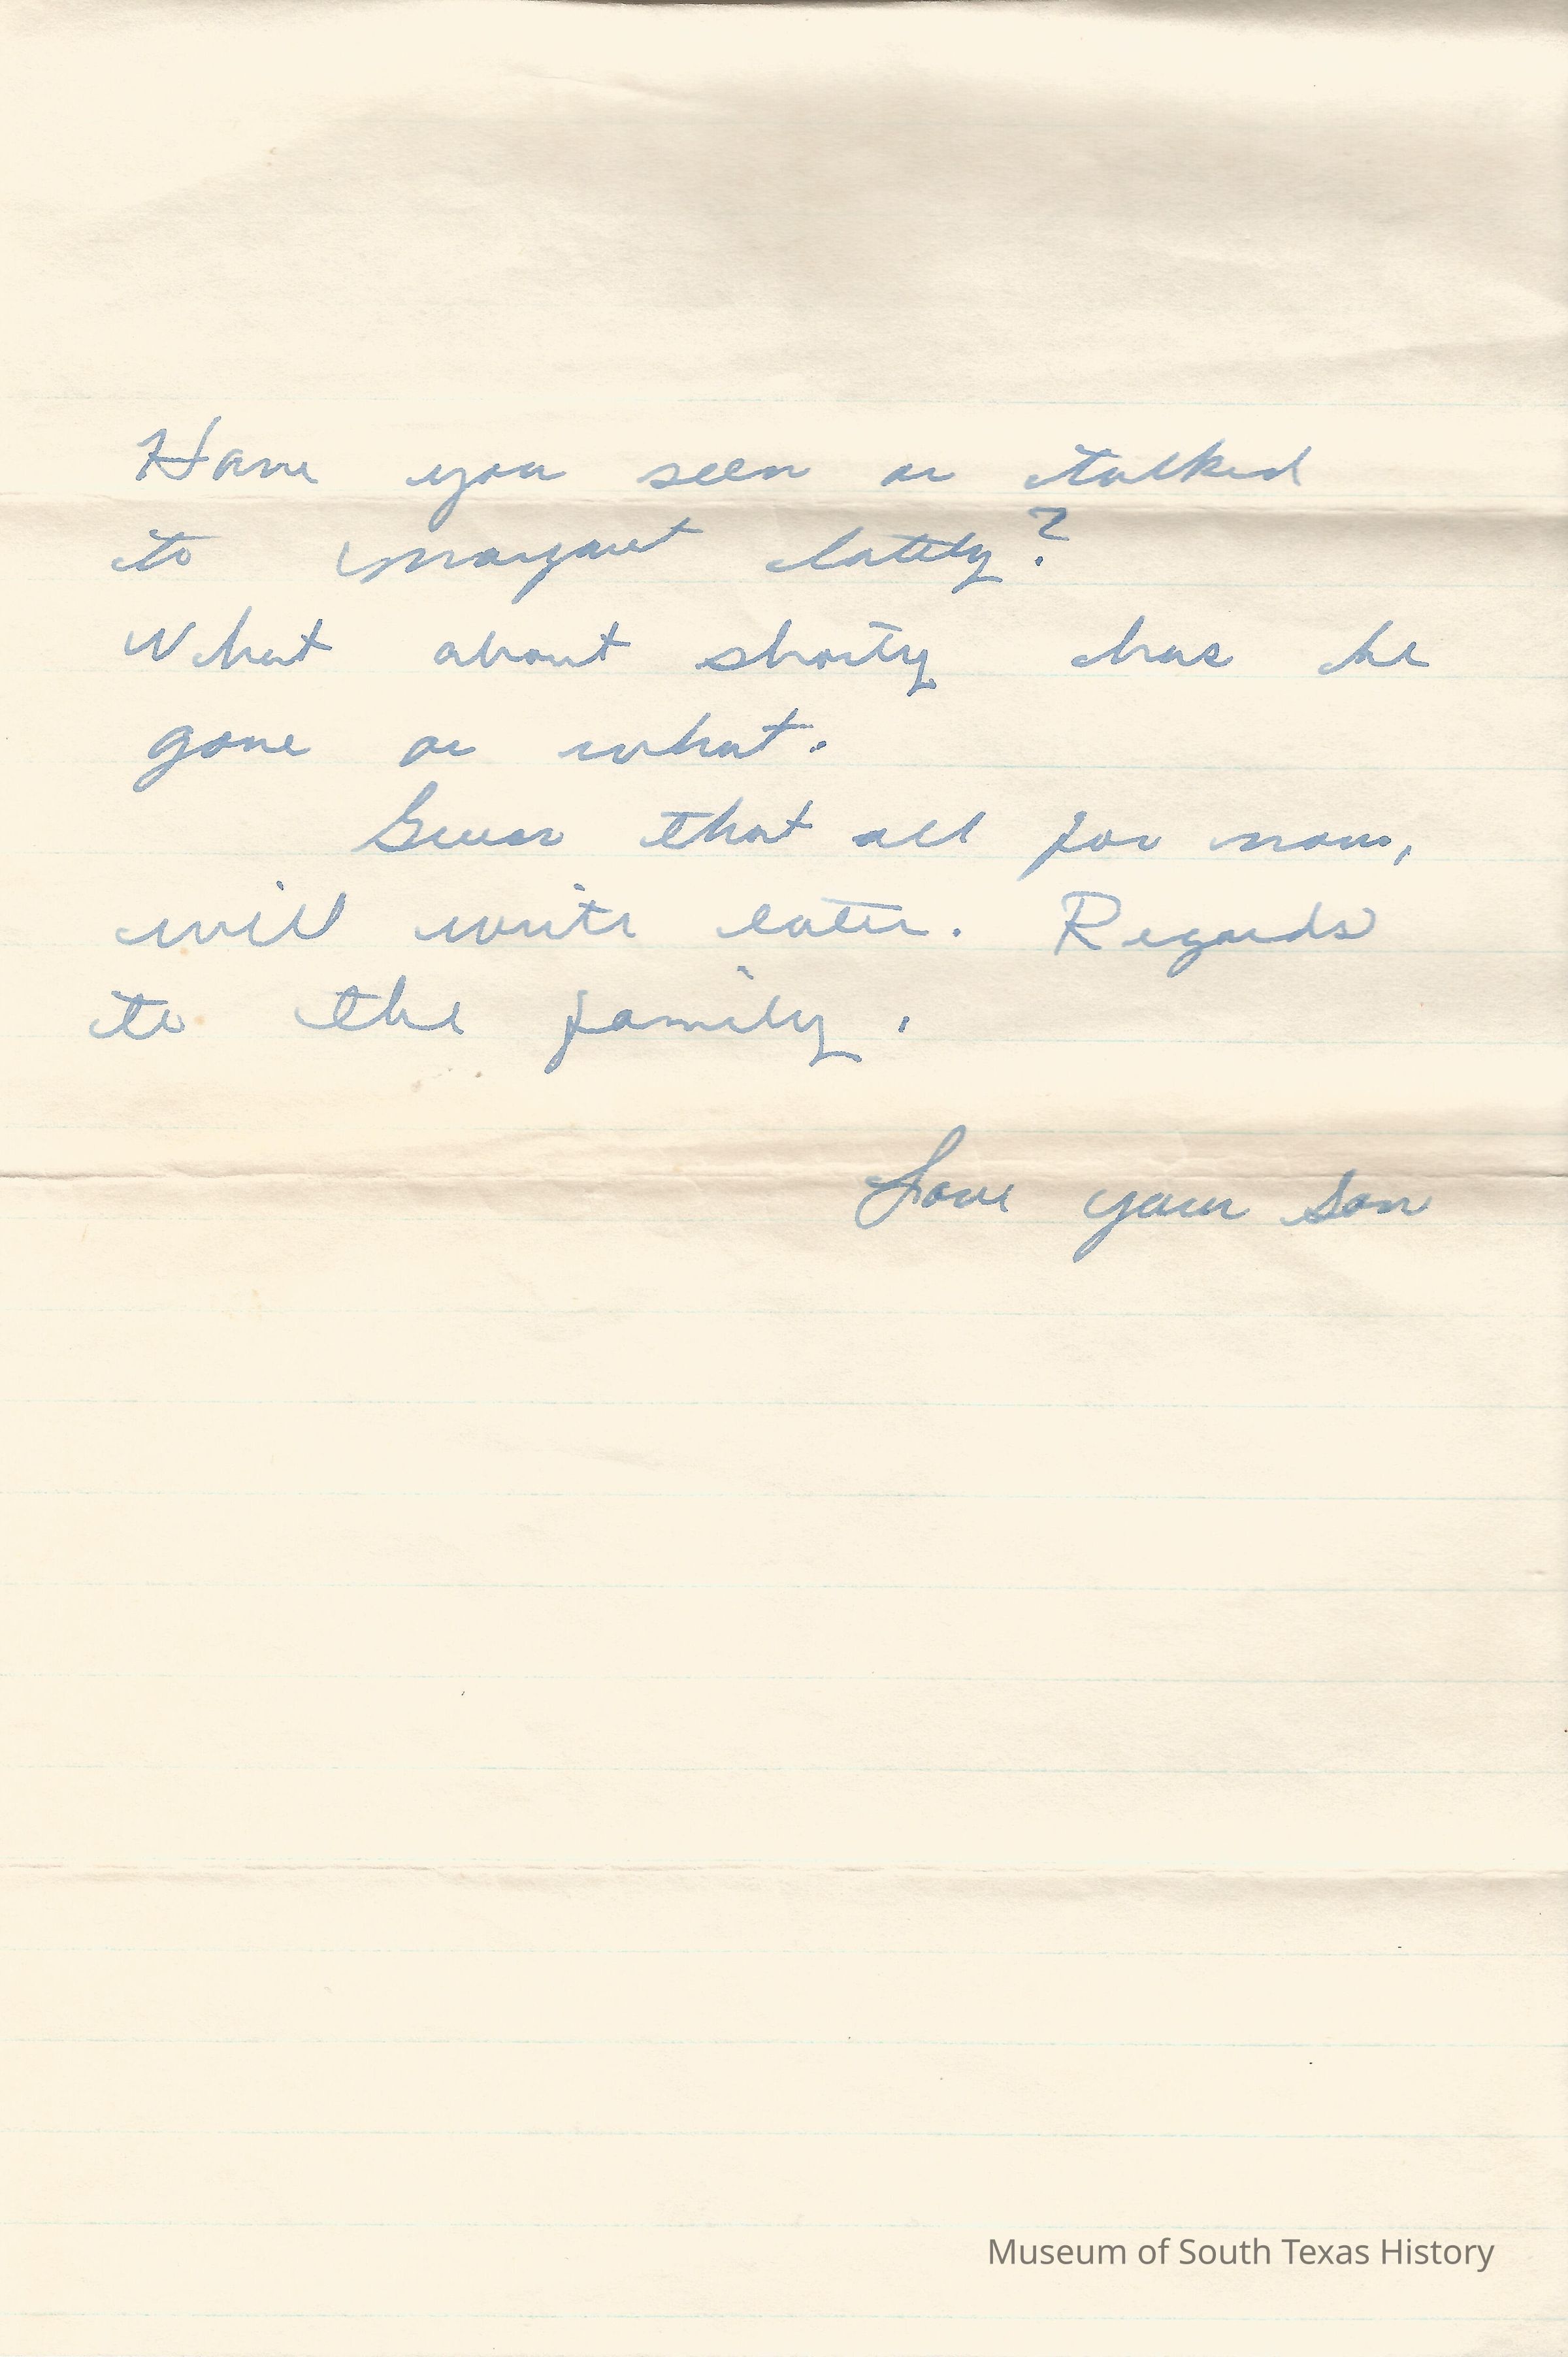 Have you seen or talked
to Margaret lately?
What about shorty has he
gone or what.
Guess that all for now,
will write later. Regards
to the family.
Love your son
Museum of South Texas History